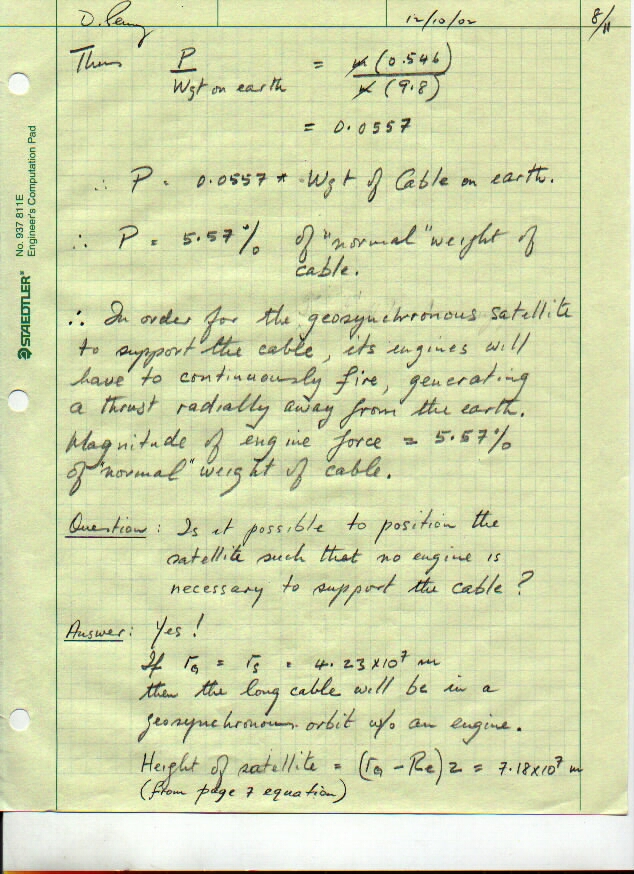 D. Penny 12/10/02 8/11
Thus P / Wgt on earth = m (0.546) / m (9.8)
= 0.0557
∴ P = 0.0557 * Wgt of Cable on earth.
∴ P = 5.57% of "normal" weight of
cable.
∴ In order for the geosynchronous satellite
to support the cable, its engines will
have to continuously fire, generating
a thrust radially away from the earth.
Magnitude of engine force = 5.57%
of "normal" weight of cable.
Question: Is it possible to position the
satellite such that no engine is
necessary to support the cable?
Answer: Yes!
If rₐ = rₛ = 4.23x10⁷ m
then the long cable will be in a
geosynchronous orbit w/o an engine.
Height of satellite = (rₐ - Re) 2 = 7.18x10⁷ m
(from page 7 equation)
STAEDTLER® No. 937 811E
Engineer's Computation Pad